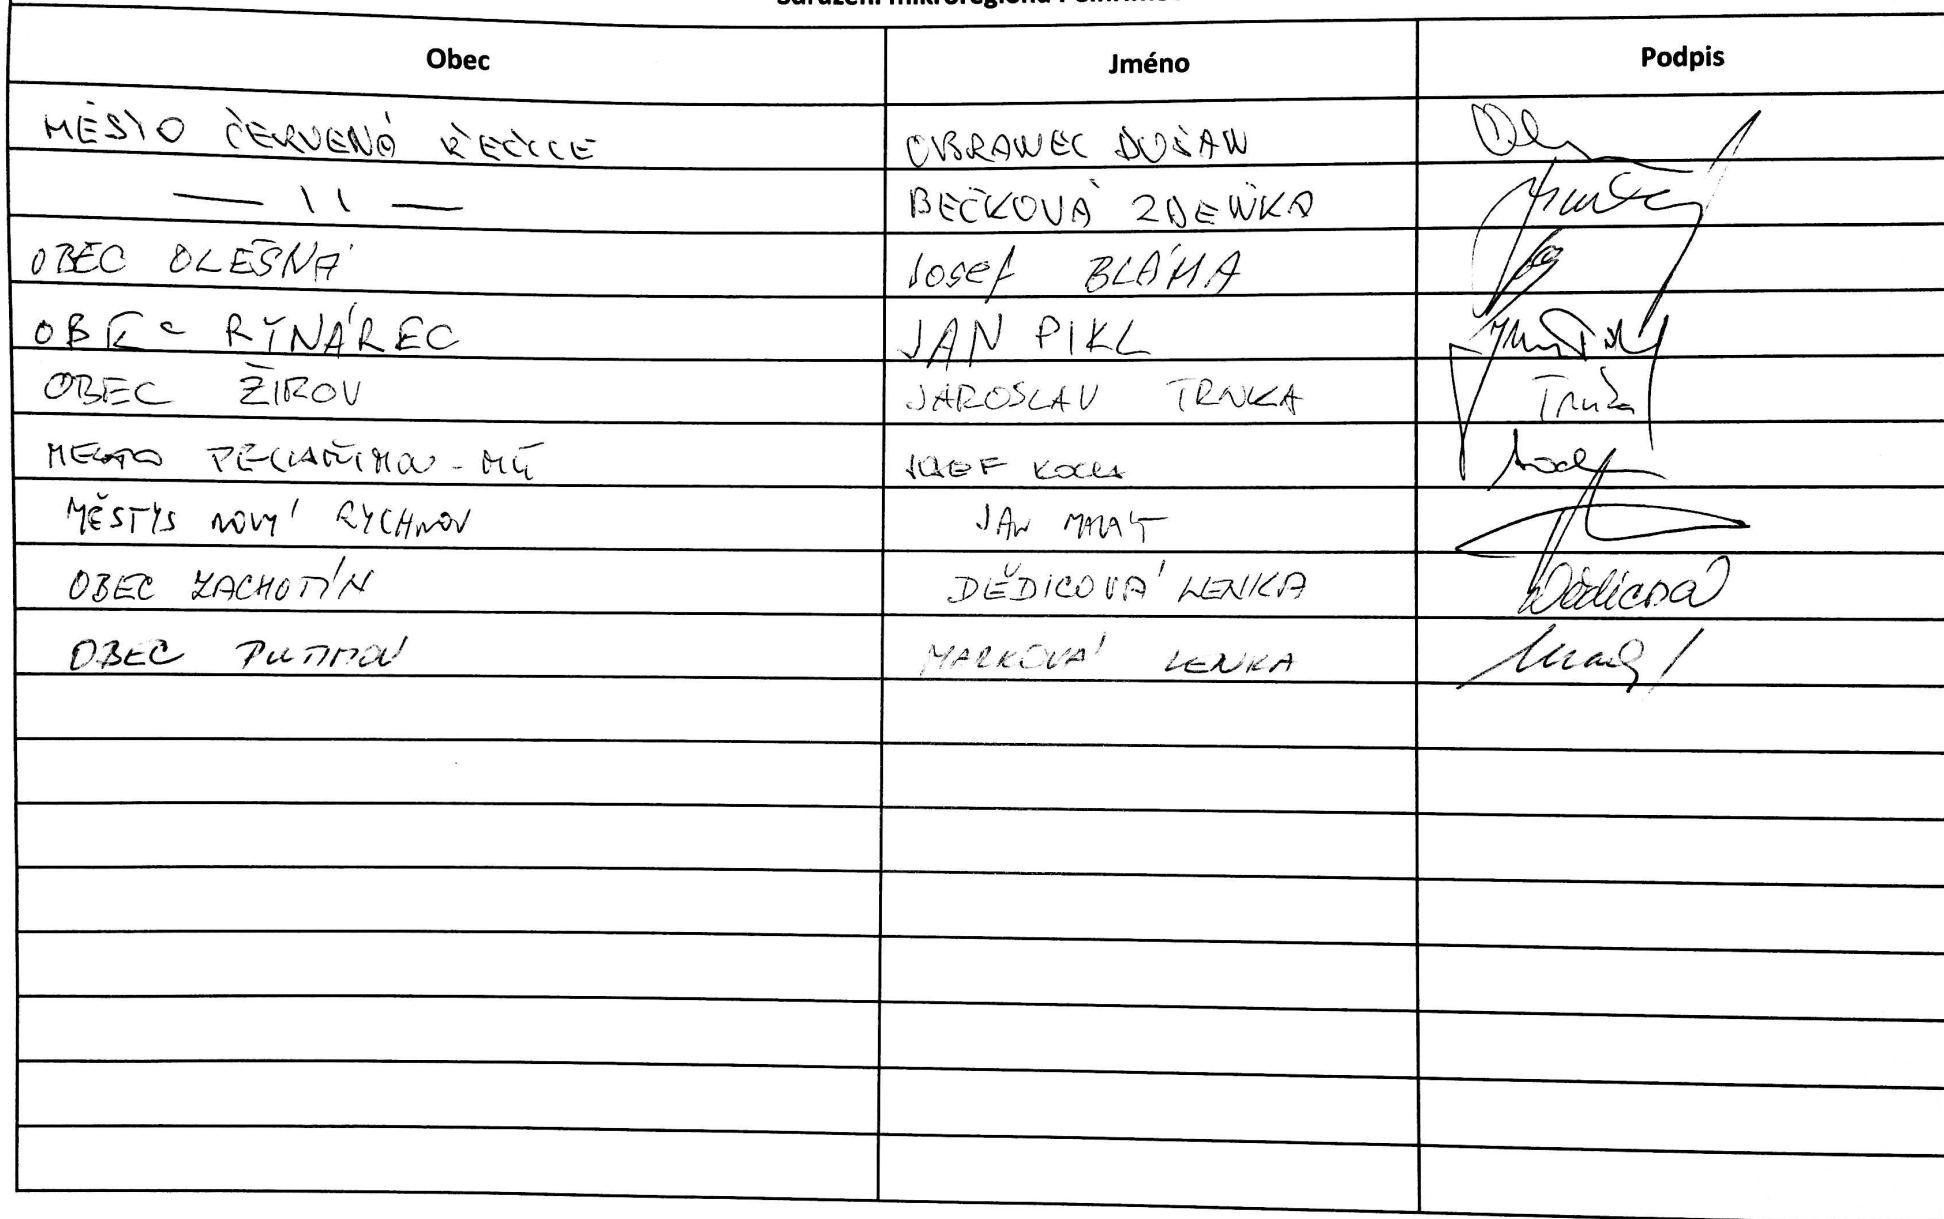 Obec Jméno Podpis
MĚSTO ČERVENÁ ŘEČICE OBRAWEC DUŠAN
— 11 — BEČKOVÁ ZDEŇKA
OBEC OLEŠNÁ Josef BLÁHA
OBEC RYNÁREC JAN PIKL
OBEC ŽIROV JAROSLAV TRNKA Trnka
MĚSTO PELHŘIMOV - MÚ JOSEF
MĚSTYS NOVÝ RYCHNOV JAN
OBEC ZACHOTÍN DĚDICOVÁ LENKA Dědicová
OBEC PUTIMOV MARKOVÁ LENKA